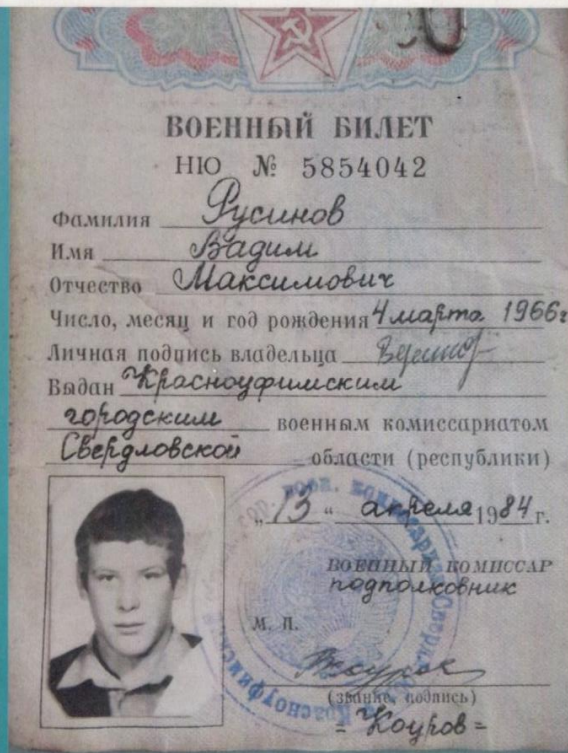 ВОЕННЫЙ БИЛЕТ
НЮ № 5854042
Фамилия Русинов
Имя Вадим
Отчество Максимович
Число, месяц и год рождения 4 марта 1966г
Личная подпись владельца
Выдан Красноуфимским
городским военным комиссариатом
Свердловской области (республики)
„13“ апреля 1984 г.
ВОЕННЫЙ КОМИССАР
подполковник
М. П.
(звание, подпись)
= Коуров =